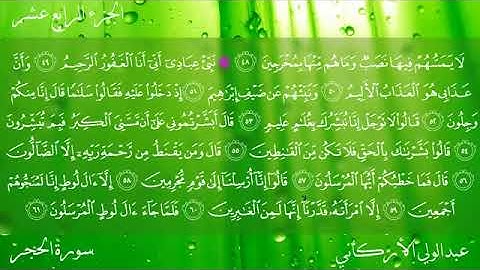 الجزء الرابع عشر
لَا يَمَسُّهُمْ فِيهَا نَصَبٌ وَمَا هُم مِّنْهَا بِمُخْرَجِينَ ٤٨ نَبِّئْ عِبَادِي أَنِّي أَنَا الْغَفُورُ الرَّحِيمُ ٤٩ وَأَنَّ
عَذَابِي هُوَ الْعَذَابُ الْأَلِيمُ ٥٠ وَنَبِّئْهُمْ عَن ضَيْفِ إِبْرَاهِيمَ ٥١ إِذْ دَخَلُوا عَلَيْهِ فَقَالُوا سَلَامًا قَالَ إِنَّا مِنكُمْ
وَجِلُونَ ٥٢ قَالُوا لَا تَوْجَلْ إِنَّا نُبَشِّرُكَ بِغُلَامٍ عَلِيمٍ ٥٣ قَالَ أَبَشَّرْتُمُونِي عَلَى أَن مَّسَّنِيَ الْكِبَرُ فَبِمَ تُبَشِّرُونَ
٥٤ قَالُوا بَشَّرْنَاكَ بِالْحَقِّ فَلَا تَكُن مِّنَ الْقَانِطِينَ ٥٥ قَالَ وَمَن يَقْنَطُ مِن رَّحْمَةِ رَبِّهِ إِلَّا الضَّالُّونَ
٥٦ قَالَ فَمَا خَطْبُكُمْ أَيُّهَا الْمُرْسَلُونَ ٥٧ قَالُوا إِنَّا أُرْسِلْنَا إِلَى قَوْمٍ مُّجْرِمِينَ ٥٨ إِلَّا آلَ لُوطٍ إِنَّا لَمُنَجُّوهُمْ
أَجْمَعِينَ ٥٩ إِلَّا امْرَأَتَهُ قَدَّرْنَا إِنَّهَا لَمِنَ الْغَابِرِينَ ٦٠ فَلَمَّا جَاءَ آلَ لُوطٍ الْمُرْسَلُونَ ٦١
عبدالولي الأركاني
سورة الحجر